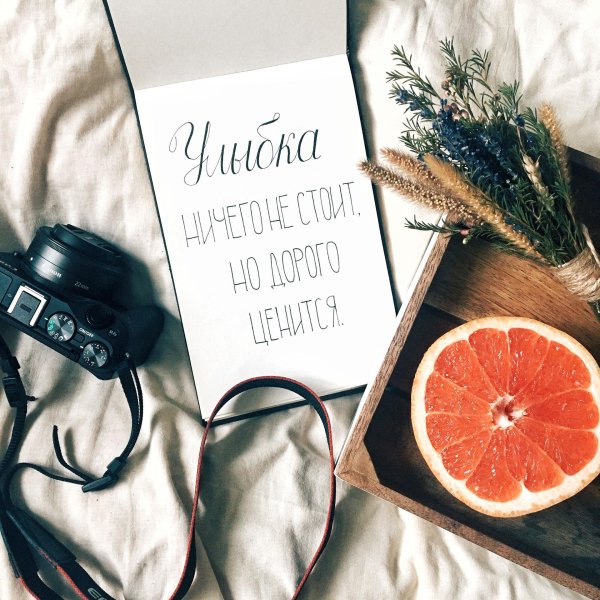 Улыбка
НИЧЕГО НЕ СТОИТ,
НО ДОРОГО
ЦЕНИТСЯ.